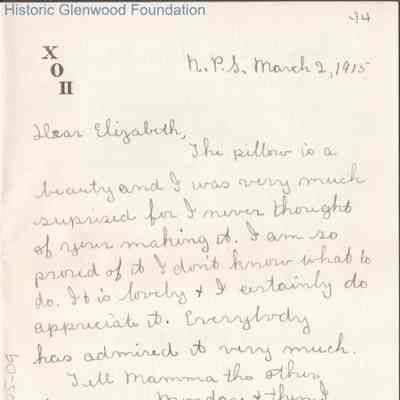 Historic Glenwood Foundation
X
O
II
N.P.S. March 2, 1915
Dear Elizabeth,
The pillow is a
beauty and I was very much
suprised for I never thought
of your making it. I am so
proud of it I don't know what to
do. It is lovely & I certainly do
appreciate it. Everybody
has admired it very much.
Tell Mamma the other
Monday & then I